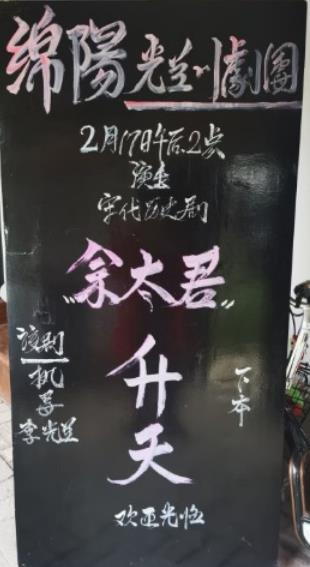 绵陽光兰川劇團
2月17日午后2点
演出
宋代历史剧
“佘太君”
升天
下本
该剧
机导
李光兰
欢迎光临